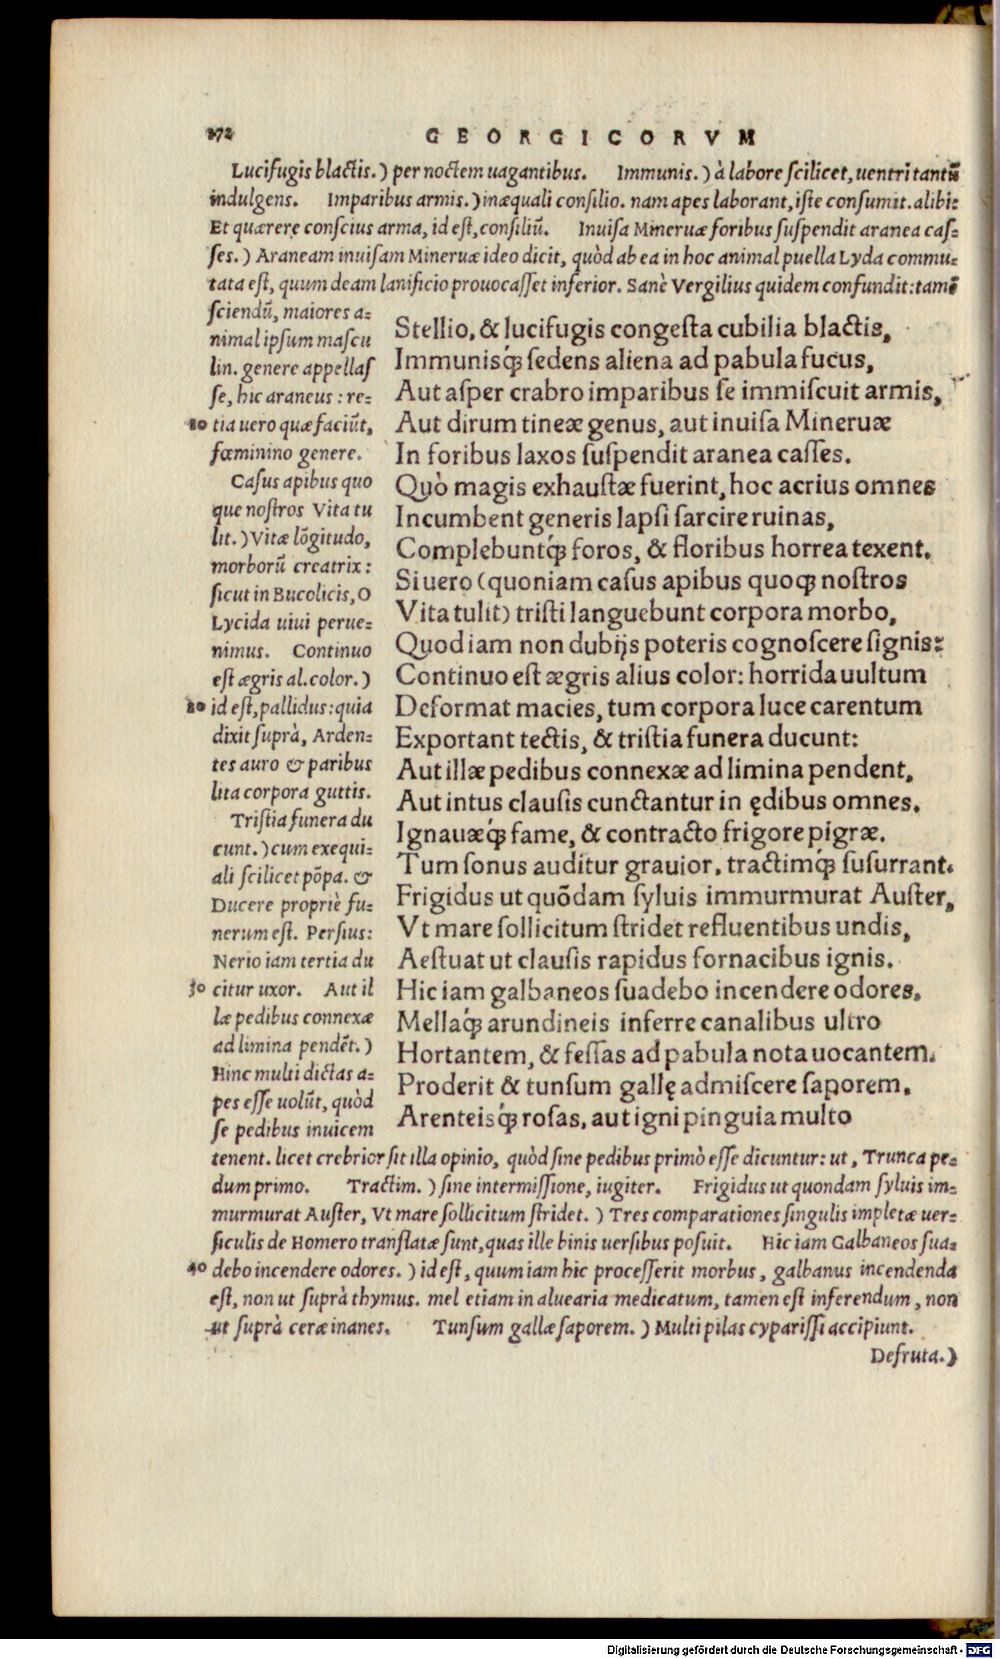 272 GEORGICORVM
Lucifugis blactis.) per noctem uagantibus. Immunis.) à labore scilicet, uentri tantũ
indulgens. Imparibus armis.) inæquali consilio. nam apes laborant, iste consumit. alibi:
Et quærere conscius arma, id est, consiliũ. Inuisa Mineruæ foribus suspendit aranea cas=
ses.) Araneam inuisam Mineruæ ideo dicit, quòd ab ea in hoc animal puella Lyda commu=
tata est, quum deam lanificio prouocasset inferior. Sanè Vergilius quidem confundit: tamẽ
sciendũ, maiores a=
nimal ipsum mascu
lin. genere appellas
se, hic araneus: re=
10 tia uero quæ faciũt,
fœminino genere.
Casus apibus quo
que nostros Vita tu
lit.) Vitæ lõgitudo,
morborũ creatrix:
sicut in Bucolicis, O
Lycida uiui perue=
nimus. Continuo
est ægris al. color.)
20 id est, pallidus: quia
dixit suprà, Arden=
tes auro & paribus
lita corpora guttis.
Tristia funera du
cunt.) cum exequi=
ali scilicet põpa. &
Ducere propriè fu=
nerum est. Persius:
Nerio iam tertia du
30 citur uxor. Aut il
læ pedibus connexæ
ad limina pendẽt.)
Hinc multi dictas a=
pes esse uolũt, quòd
se pedibus inuicem
Stellio, & lucifugis congesta cubilia blactis,
Immunisq́; sedens aliena ad pabula fucus,
Aut asper crabro imparibus se immiscuit armis,
Aut dirum tineæ genus, aut inuisa Mineruæ
In foribus laxos suspendit aranea casses.
Quò magis exhaustæ fuerint, hoc acrius omnes
Incumbent generis lapsi sarcire ruinas,
Complebuntq́; foros, & floribus horrea texent.
Si uero (quoniam casus apibus quoq; nostros
Vita tulit) tristi languebunt corpora morbo,
Quod iam non dubijs poteris cognoscere signis:
Continuo est ægris alius color: horrida uultum
Deformat macies, tum corpora luce carentum
Exportant tectis, & tristia funera ducunt:
Aut illæ pedibus connexæ ad limina pendent,
Aut intus clausis cunctantur in ędibus omnes.
Ignauæq́; fame, & contracto frigore pigræ.
Tum sonus auditur grauior, tractimq́; susurrant.
Frigidus ut quõdam syluis immurmurat Auster,
Vt mare sollicitum stridet refluentibus undis,
Aestuat ut clausis rapidus fornacibus ignis.
Hic iam galbaneos suadebo incendere odores,
Mellaq́; arundineis inferre canalibus ultro
Hortantem, & fessas ad pabula nota uocantem.
Proderit & tunsum gallę admiscere saporem.
Arenteisq́; rosas, aut igni pinguia multo
tenent. licet crebrior sit illa opinio, quòd sine pedibus primò esse dicuntur: ut, Trunca pe=
dum primo. Tractim.) sine intermissione, iugiter. Frigidus ut quondam syluis im=
murmurat Auster, Vt mare sollicitum stridet.) Tres comparationes singulis impletæ uer=
siculis de Homero translatæ sunt, quas ille binis uersibus posuit. Hic iam Galbaneos sua=
40 debo incendere odores.) id est, quum iam hic processerit morbus, galbanus incendenda
est, non ut suprà thymus. mel etiam in aluearia medicatum, tamen est inferendum, non
ut suprà ceræ inanes. Tunsum gallæ saporem.) Multi pilas cyparissi accipiunt.
Defruta.)
Digitalisierung gefördert durch die Deutsche Forschungsgemeinschaft - DFG